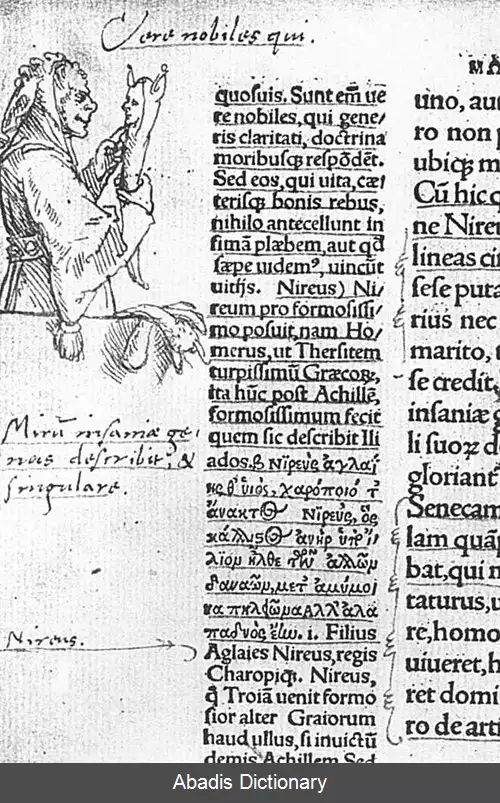 Vere nobiles qui.
quosuis. Sunt em̄ ue
re nobiles, qui gene/
ris claritati, doctrina
moribusq; respōdēt.
Sed eos, qui uita, cæ/
terisq; bonis rebus,
nihilo antecellunt in
fimā plæbem, aut qd
sæpe uidemꝰ, uincūt
uitijs. Nireus) Ni/
reum pro formosissi/
mo posuit, nam Ho/
merus, ut Thersitem
turpissimū Græcoꝝ,
ita hūc post Achillē,
formosissimum fecit
quem sic describit Ili
ados. β Νῖρευς ἀγλαΐ
ης θ' υἱός, χαρόποιό τ'
ἄνακτ
Νῖρευς, ὃς
ἀνὴρ
Filius
Aglaies Nireus, regis
Charopiq;. Nireus,
q̄ Troiā uenit formo
sior alter Graiorum
haud ullus, si inuictū
demis Achillem. Sed
Mirū insaniæ ge/
nas describit, &
singulare.
Nireus.
MA
uno, aut
ro non p
ubiq; m
Cū hic q
ne Nireu
lineas cir
sese puta
rius nec
marito, t
se credit,
insaniæ g
li suoꝝ de
gloriant
Senecam
lam quāp
bat, qui n
taturus, u
re, homo
uiueret, h
ret domi
ro de arti
Abadis Dictionary